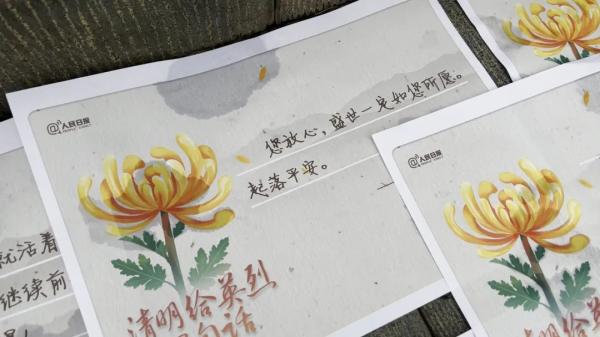 @人民日报
PEOPLE'S DAILY
您放心，盛世一定如您所愿。
起落平安。
清明给英烈
句话
就活着
继续前
@人民日报
清明给英